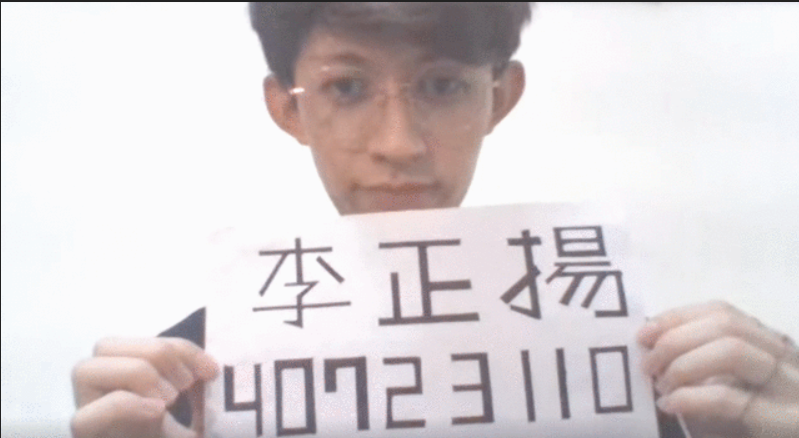 李正揚
40723110